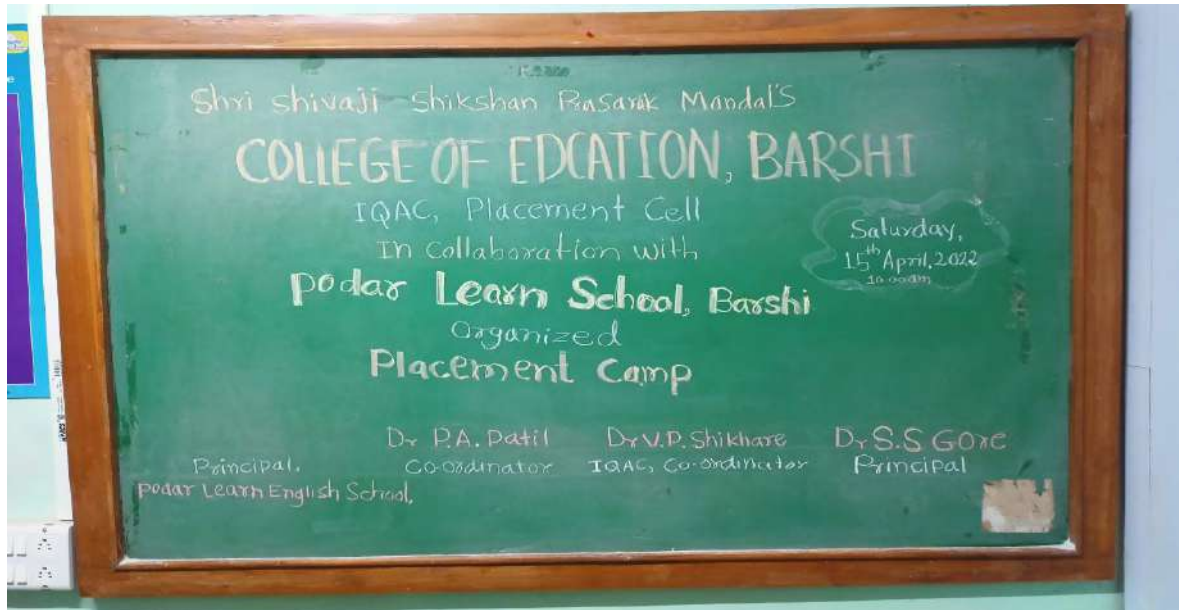 Shri Shivaji Shikshan Prasarak Mandal's
COLLEGE OF EDCATION, BARSHI
IQAC, Placement Cell
In Collaboration with
Podar Learn School, Barshi
Organized
Placement Camp
Saturday,
15th April, 2022
10.00am
Dr P.A. Patil
Co-ordinator
Dr V.P. Shikhare
IQAC, Co-ordinator
Dr S.S Gore
Principal
Principal.
Podar Learn English School,